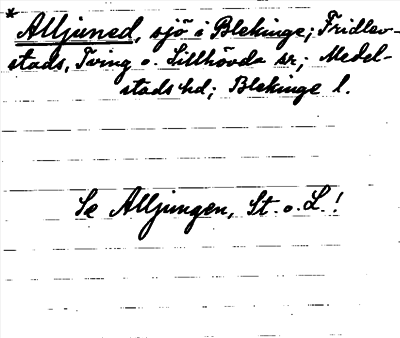 * Alljuned, sjö i Blekinge; Fridlev-
stads, Tving o. Sillhövda sr; Medel-
stads hd; Blekinge l.
Se Alljungen, St. o. L.!